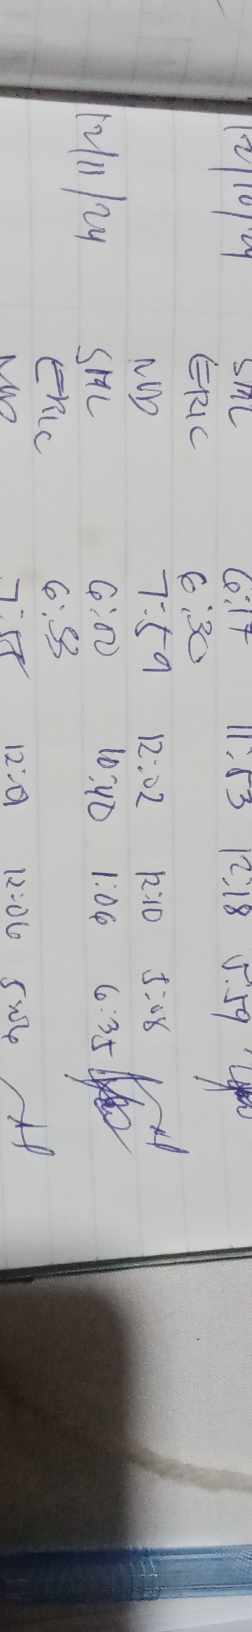 12/10/24 SAL 6:17 11:53 12:18 5:59
ERIC 6:30
MD 7:59 12:02 12:10 5:08
12/11/24 SAL 6:02 10:40 1:06 6:35
ERIC 6:33
7:55 12:01 12:06